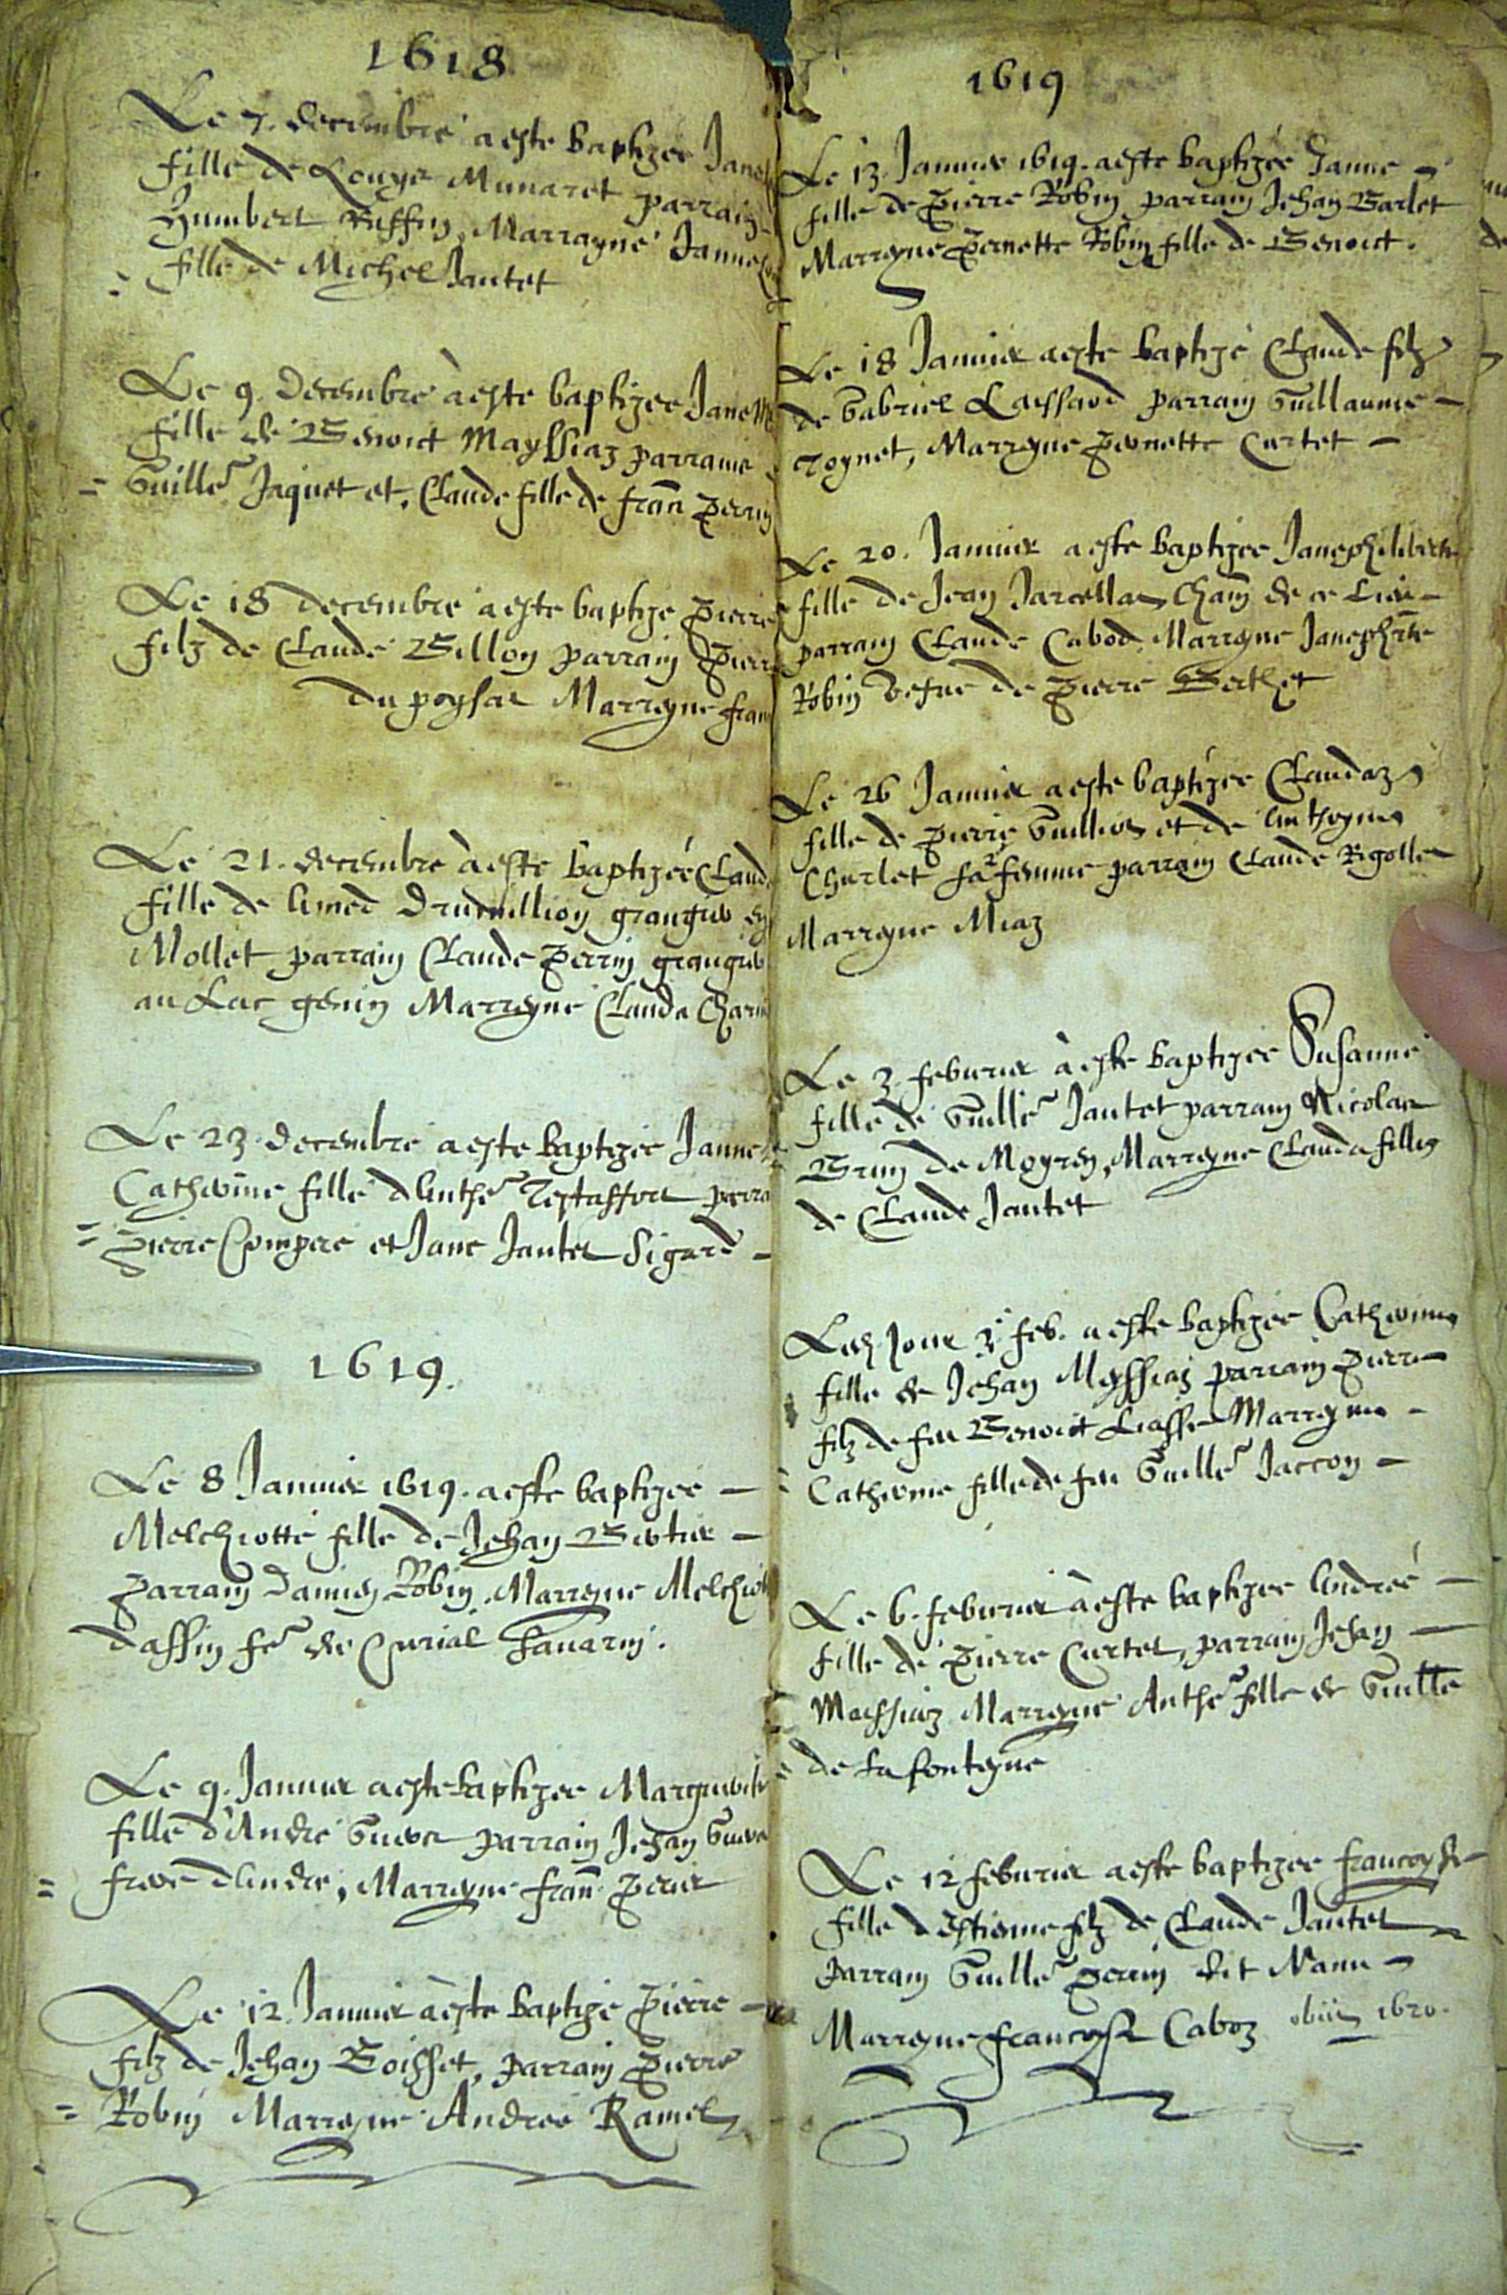 1618
Le 7. decembre a este baptizee Jane
fille de Louys Munaret parrain
Humbert Biffin, Marrayne Janne
fille de Michel Jantet
Le 9. decembre a este baptizee Jane
fille de Benoict Mayssiaz parraine
Guille Jaquet et, Claude fille de fran Perrin
Le 18 decembre a este baptize Pierre
filz de Claude Billon parrain Pierre
du poysat Marreyne fran
Le 21. decembre a este baptizee Claud
fille de Amed Drumillion grangier en
Mollet parrain Claude Perrin grangier
au Lac genin Marreyne Clauda Charn
Le 23 decembre a este baptizee Janne
Catherine fille d'Anthe Testaffort parra
Pierre Compere et Jane Jantet Sigard
1619.
Le 8 Januier 1619. a este baptizee
Melchiotte fille de Jehan Bertier
parrain Damien Robin. Marreyne Melchio
dassin fe de Curial Fauarin.
Le 9. Januier a este baptizee Marguerite
fille d'Andre Guera parrain Jehan Guera
frere d'Andre, Marreyne fran Perier
Le 12. Januier a este baptize Pierre
filz de Jehan Boisset, parrain Pierre
Robin Marreyne Andree Ramel
1619
Le 13. Januier 1619. a este baptizee Janne
fille de Pierre Robin parrain Jehan Barlet
Marreyne Pernette Robin fille de Benoict.
Le 18 Januier a este baptize Claude filz
de Gabriel Laissard parrain Guillaume
Toynet, Marreyne Pernette Curtet
Le 20. Januier a este baptizee Janephiliberte
fille de Jean Jarcellat Cham de ce Lieu
parrain Claude Cabod. Marreyne Janephrte
Robin vefue de Pierre Berthet
Le 26 Januier a este baptizee Claudaz
fille de Pierre Guillier et de Anthoyne
Charlet sa femme parrain Claude Rigollet
Marreyne Miaz
Le 3. feburier a este baptizee Susanne
fille de Guille Jantet parrain Nicolas
Brun de Moyren, Marreyne Clauda fille
de Claude Jantet
Led jour 3 feb. a este baptizee Catherine
fille de Jehan Meyssiaz parrain Pierre
filz de feu Benoict Liasse Marreyne
Catherine fille de feu Guille Jaccon
Le 6. feburier a este baptizee Andree
fille de Pierre Curtet, parrain Jehan
Maissiaz Marreyne Anthe fille de Guille
de la fonteyne
Le 12 feburier a este baptizee francoyse
fille d'Estienne filz de Claude Jantet
parrain Guille Perrin dit Nanu
Marreyne francoyse Caboz obiit 1620.